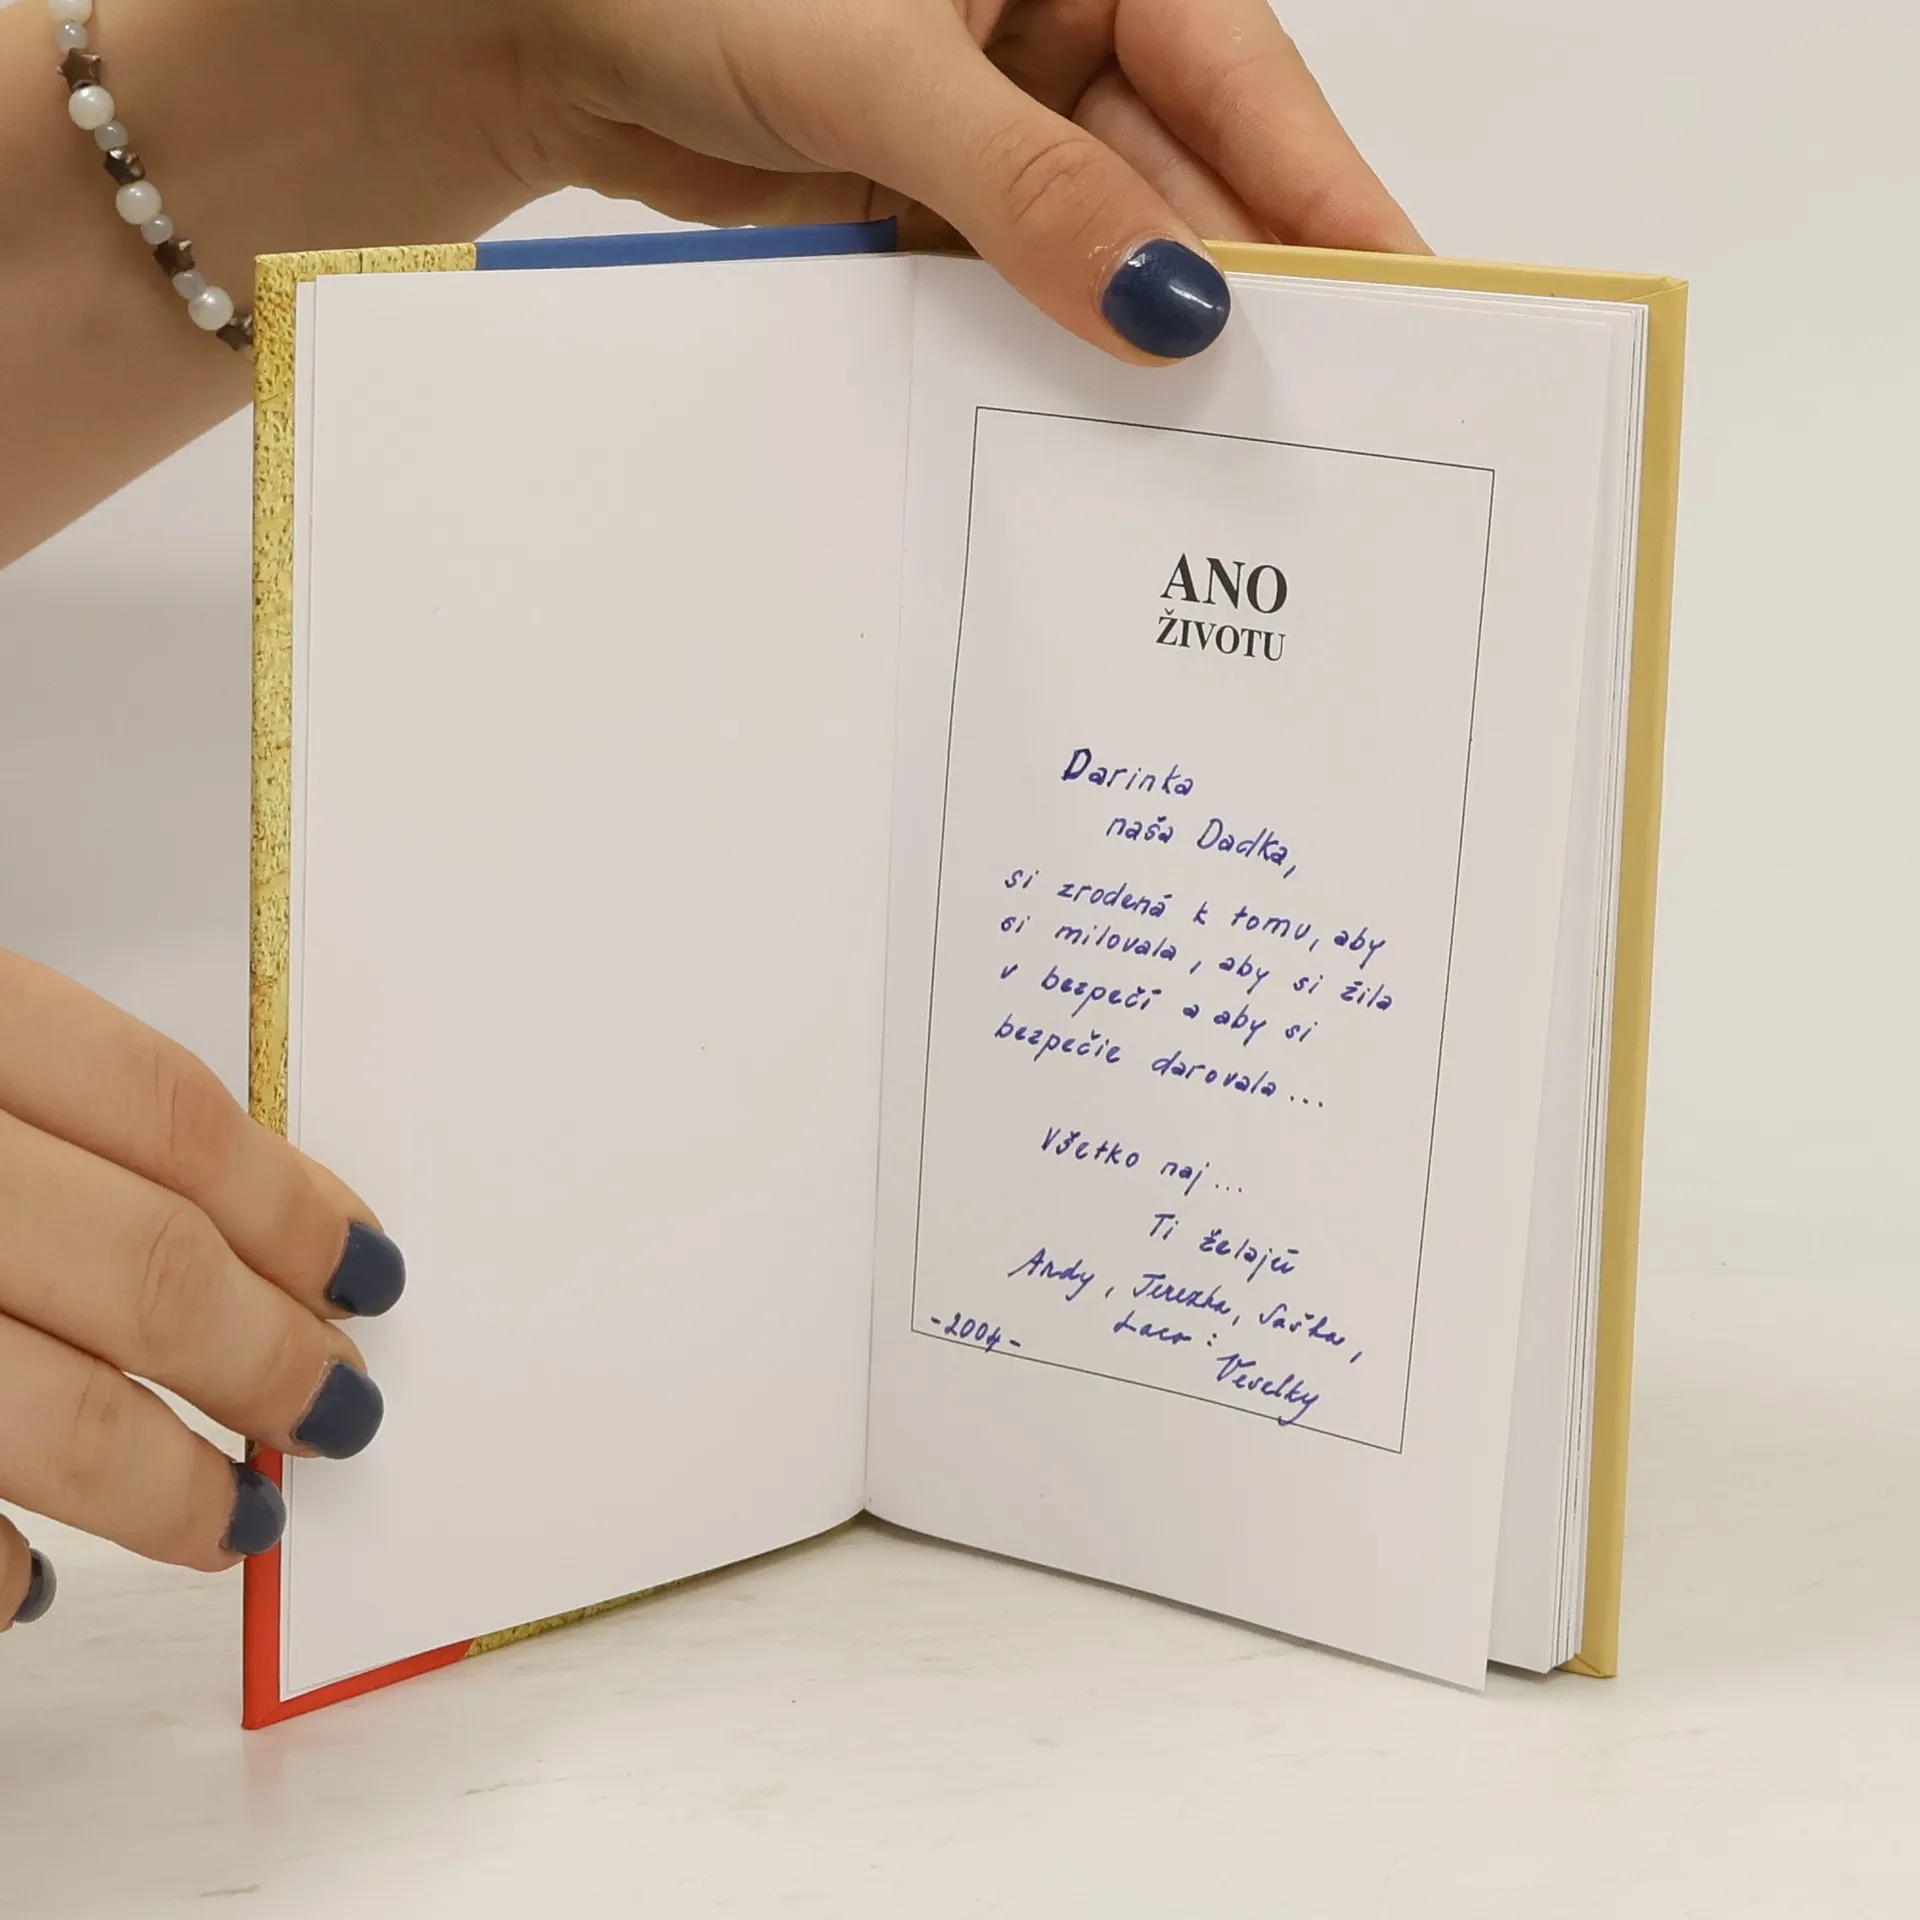 ANO
ŽIVOTU
Darinka
naša Dadka,
si zrodená k tomu, aby
si milovala, aby si žila
v bezpečí a aby si
bezpečie darovala...
Všetko naj...
Ti želajú
Andy, Terezka, Saška,
Laco :
-2004-
Veselky